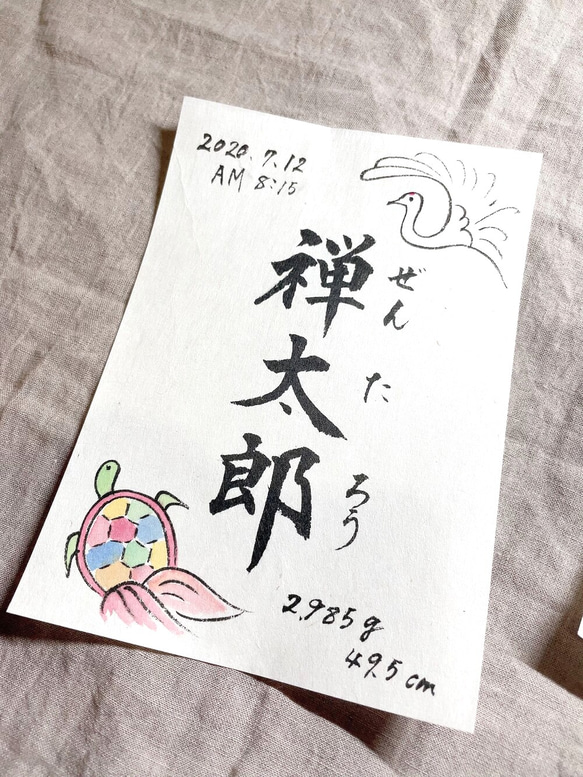 2020.7.12
AM 8:15
禅太郎
ぜんたろう
2,985g
49.5cm